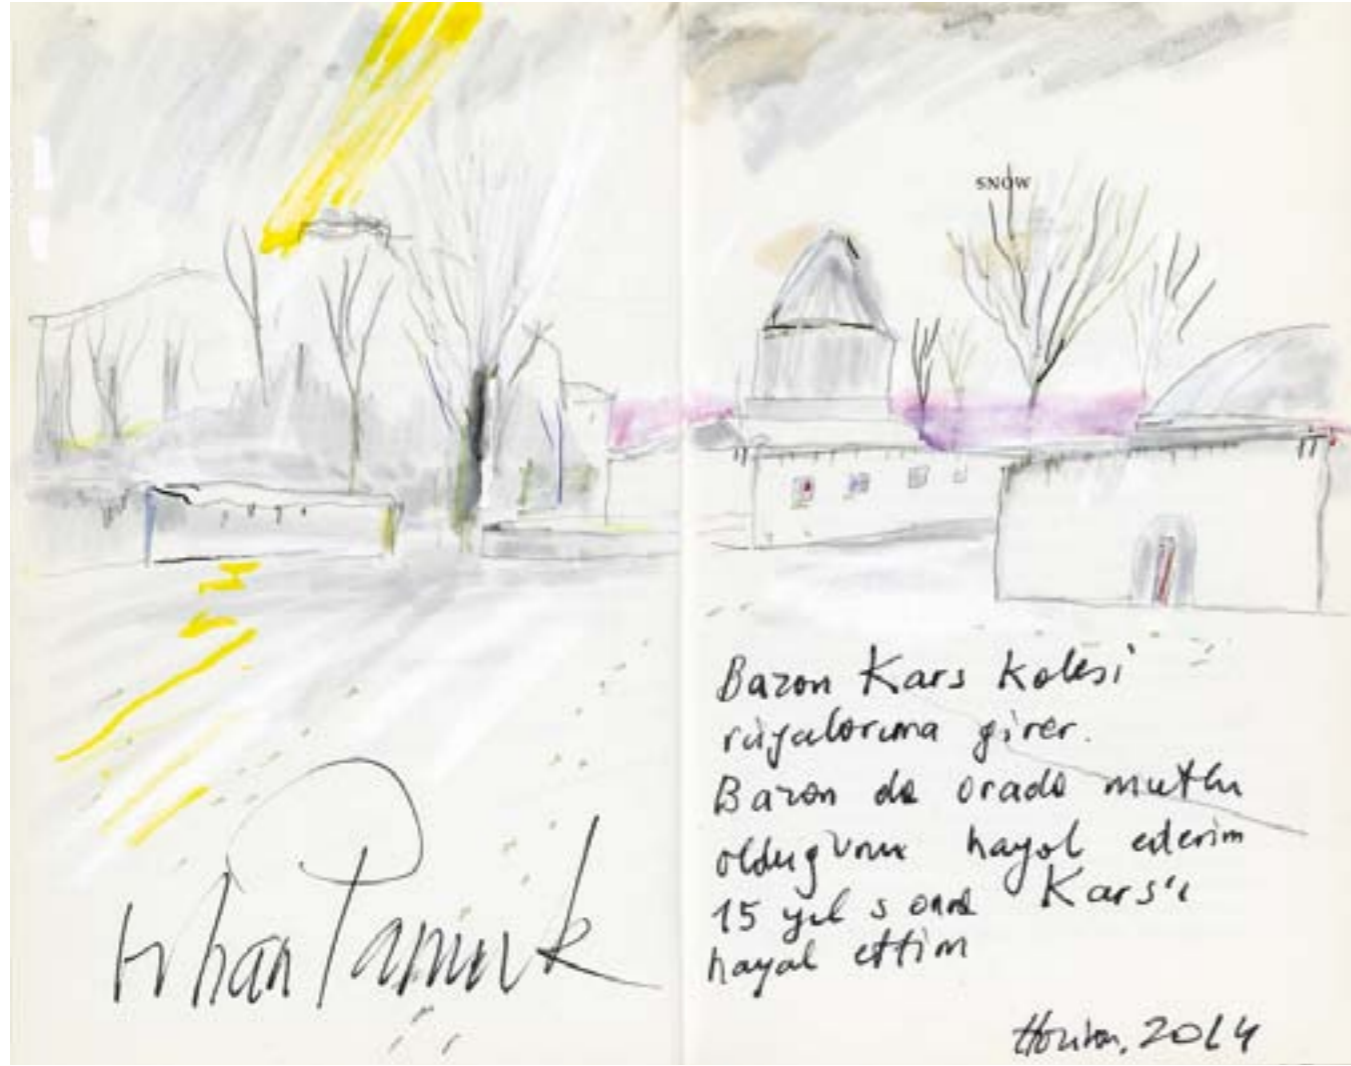 SNOW
Orhan Pamuk
Bazen Kars Kalesi
rüyalarıma girer.
Bazen de orada mutlu
olduğumu hayal ederim
15 yıl sonra Kars'ı
hayal ettim
Haziran, 2014